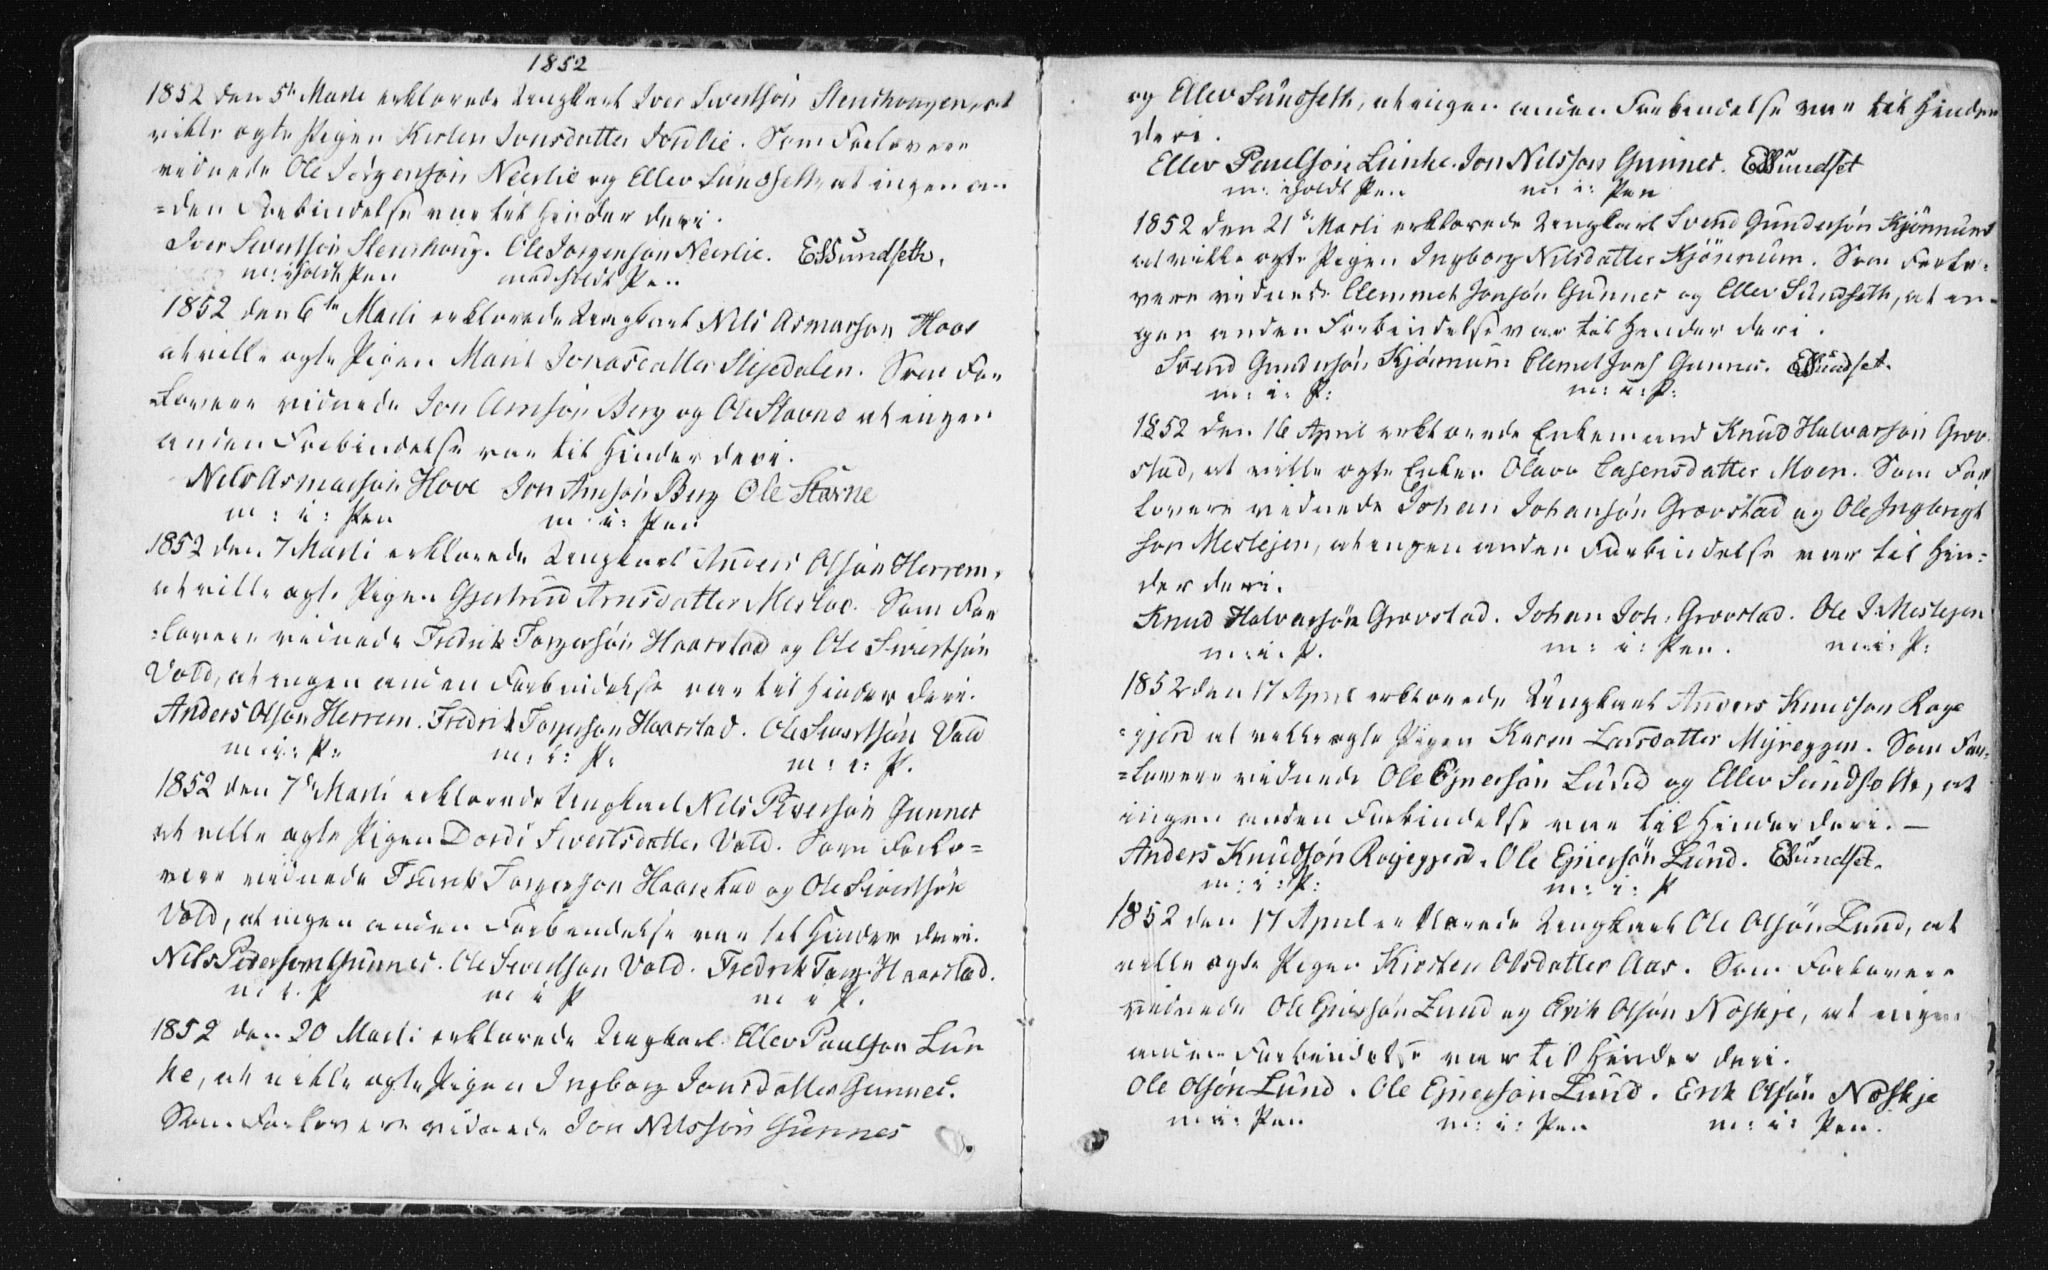 1852
1852 den 5te Marti erklærede Ungkarl Iver Sivertsøn Stenshougen, at
ville ægte Pigen Kirsten Jonsdatter Jordlie. Som Forlovere
vidnede Ole Jørgensøn Neerlie og Ellev Sundseth, at ingen an-
=den Forbindelse var til Hinder deri.
Iver Sivertsøn Stenshoug. Ole Jørgensøn Neerlie. ESSundseth.
m: iholdt Pen medholdt Pen
1852 den 6te Marti erklærede Ungkarl Nils Asmarson Hove
at ville ægte Pigen Marit Jonasdatter Stejedalen. Som For
lovere vidnede Jon Arnsøn Berg og Ole Stavne at ingen
anden Forbindelse var til Hinder deri.
Nils Asmarson Hove Jon Arnsøn Berg Ole Stavne
m: i: Pen m: i: Pen
1852 den 7 Marti erklærede Ungkarl Anders Olsøn Herrem,
at ville ægte Pigen Gjertrud Arnsdatter Mesloe. Som For
=lovere vidnede Fredrik Torgersøn Haarstad og Ole Sivertsøn
Vold, at ingen anden Forbindelse var til Hinder deri.
Anders Olson Herrem. Fredrik Torgerson Haarstad. Ole Sivertsøn Vold
m: i: Pn m: i: P. m: i: P.
1852 den 7de Marti erklærede Ungkarl Nils Pedersøn Gunnes
at ville ægte Pigen Dordi Sivertsdatter Vold. Som Forlo=
vere vidnede Fredrik Torgerson Haarstad og Ole Sivertsøn
Vold, at ingen anden Forbindelse var til Hinder deri.
Nils Pederson Gunnes. Ole Sivertson Vold. Fredrik Torg. Haarstad.
m i. P m i P m i P.
1852 den 20 Marti erklærede Ungkarl Ellev Paulson Lun
ke, at ville ægte Pigen Ingborg Jonsdatter Gunnes.
Som Forlovere vidnede Jon Nilssøn Gunnes
og Ellev Sundseth, at ingen anden Forbindelse var til Hinder
deri.
Ellev Paulsøn Lunke. Jon Nilsson Gunnes. ESSundset
m: iholdt Pen m: i: Pen
1852 den 21de Marti erklærede Ungkarl Svend Gundersøn Kjønnum
at ville ægte Pigen Ingborg Nilsdatter Kjønnum. Som Forlo=
vere vidnede Clemmet Jonsøn Gunnes og Ellev Sundseth, at in-
gen anden Forbindelse var til Hinder deri.
Svend Gundersøn Kjønnum Clemet Jons Gunnes. ESSundset.
m: i: P: m: i: P:
1852 den 16 April erklærede Enkemand Knud Halvarsøn Grov
stad, at ville ægte Enken Olava Casensdatter Moen. Som For
lovere vidnede Johan Johansøn Grovstad og Ole Ingbrigt
son Meslejen, at ingen anden Forbindelse var til Hin=
der deri.
Knud Halvarsøn Grovstad. Johan Joh: Grovstad. Ole I Meslejen
m: i. P. m: i: Pen. m: i: P:
1852 den 17 April erklærede Ungkarl Anders Knudson Roge
=gjerd at ville ægte Pigen Karen Larsdatter Myreggen. Som For=
=lovere vidnede Ole Ejnersøn Lund og Ellev Sundseth, at
ingen anden Forbindelse var til Hinder deri. —
Anders Knudsøn Rogegjerd. Ole Ejnersøn Lund. ESundset.
m: i: P: m: i: P
1852 den 17 April erklærede Ungkarl Ole Olsøn Lund, at
ville ægte Pigen Kirsten Olsdatter Aas. Som Forlovere
vidnede Ole Ejnersøn Lund og Erik Olsøn Noshje, at ingen
anden Forbindelse var til Hinder deri.
Ole Olsøn Lund. Ole Ejnersøn Lund. Erik Olsøn Noshje
m: i: Pen m: i: Pen m: i: Pen.